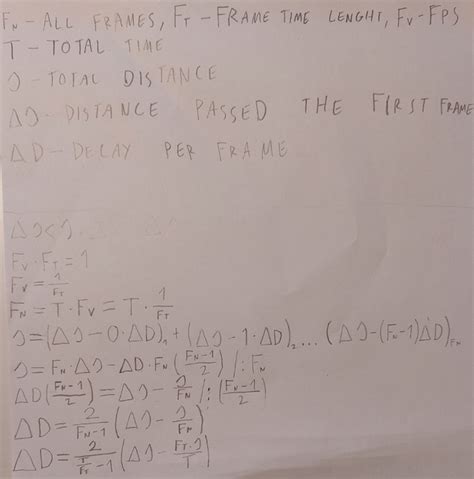 F_N - ALL FRAMES, F_T - FRAME TIME LENGHT, F_V - FPS
T - TOTAL TIME
S - TOTAL DISTANCE
ΔS - DISTANCE PASSED THE FIRST FRAME
ΔD - DECAY PER FRAME
ΔS < S
F_V · F_T = 1
F_V = 1/F_T
F_N = T · F_V = T · 1/F_T
S = (ΔS - 0 · ΔD)_1 + (ΔS - 1 · ΔD)_2 ... (ΔS - (F_N - 1)ΔD)_{F_N}
S = F_N · ΔS - ΔD · F_N ((F_N - 1)/2) /: F_N
ΔD((F_N - 1)/2) = ΔS - S/F_N /: ((F_N - 1)/2)
ΔD = 2/(F_N - 1) (ΔS - S/F_N)
ΔD = 2/(T/F_T - 1) (ΔS - (F_T · S)/T)